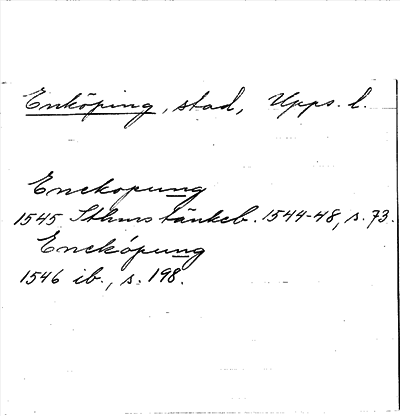 Enköping, stad, Upps. l.
Enekopung
1545 Sthms tänkeb. 1544-48, s. 73.
Enekópung
1546 ib., s. 198.